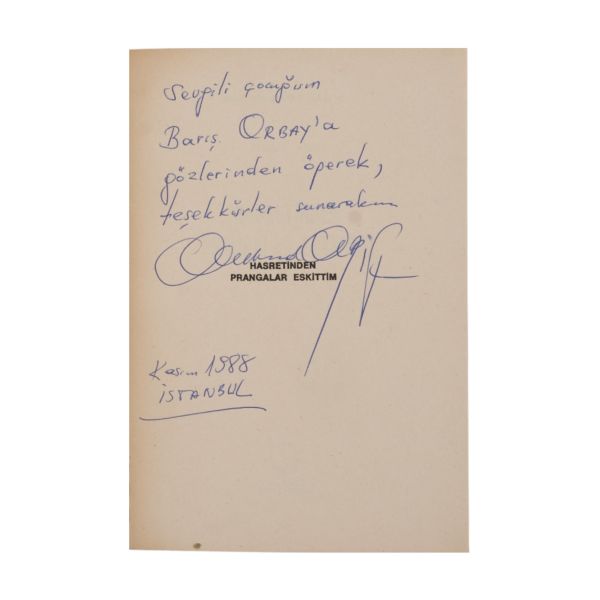 Sevgili çocuğum
Barış ORBAY'a
gözlerinden öperek,
teşekkürler sunarakım
Ahmed Arif
HASRETİNDEN
PRANGALAR ESKİTTİM
Kasım 1988
İSTANBUL